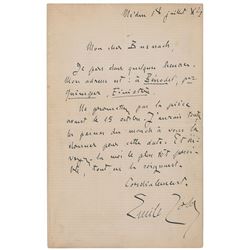 Médan 14 juillet 84
Mon cher Busnach,
Je pars dans quelques heures.
Mon adresse est : à Bénodet, par
Quimper, Finistère.
Ne promettez pas la pièce
avant le 15 octobre. J'aurais toutes
les peines du monde à vous la
donner pour cette date. Et
le plus tôt
tout en le soignant.
Cordialement,
Emile Zola